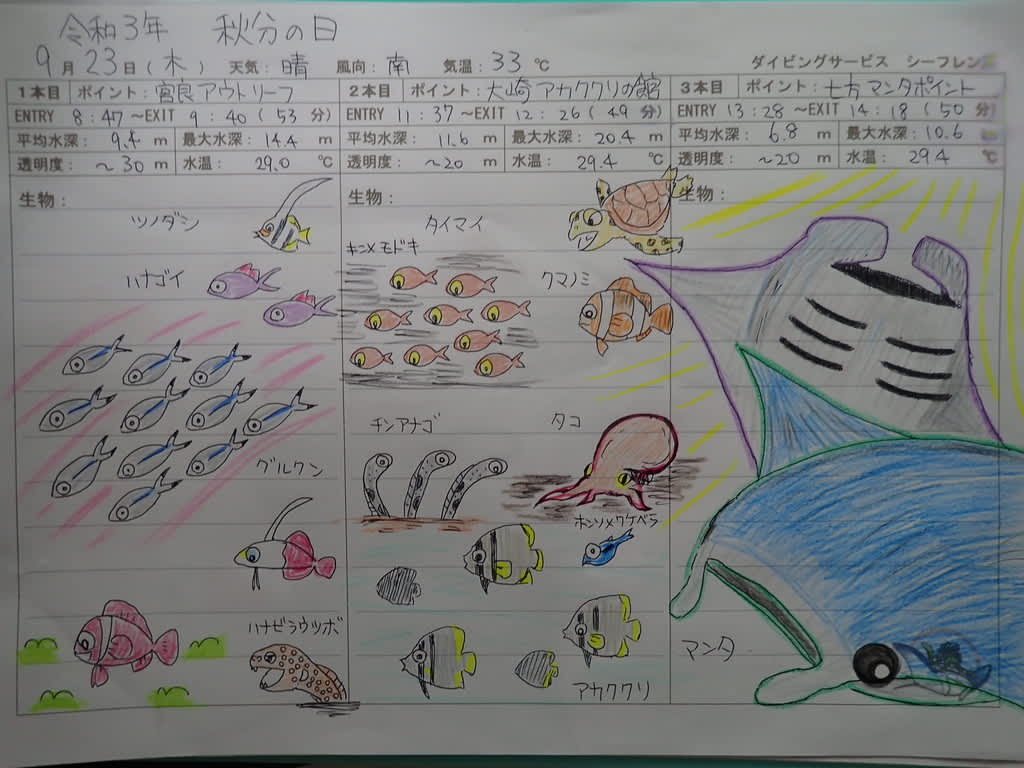 令和3年 秋分の日
9月23日(木) 天気:晴 風向:南 気温:33℃ ダイビングサービス シーフレンズ
1本目 ポイント:宮良アウトリーフ
ENTRY 8:47~EXIT 9:40(53分)
平均水深: 9.4 m 最大水深: 14.4 m
透明度: ~30 m 水温: 29.0 ℃
生物:
ツノダシ
ハナゴイ
グルクン
ハナビラウツボ
2本目 ポイント:大崎アカククリの館
ENTRY 11:37~EXIT 12:26(49分)
平均水深: 11.6 m 最大水深: 20.4 m
透明度: ~20 m 水温: 29.4 ℃
生物:
タイマイ
キンメモドキ
クマノミ
チンアナゴ
タコ
ホンソメワケベラ
アカククリ
3本目 ポイント:七方マンタポイント
ENTRY 13:28~EXIT 14:18(50分)
平均水深: 6.8 m 最大水深: 10.6 m
透明度: ~20 m 水温: 29.4 ℃
生物:
マンタ